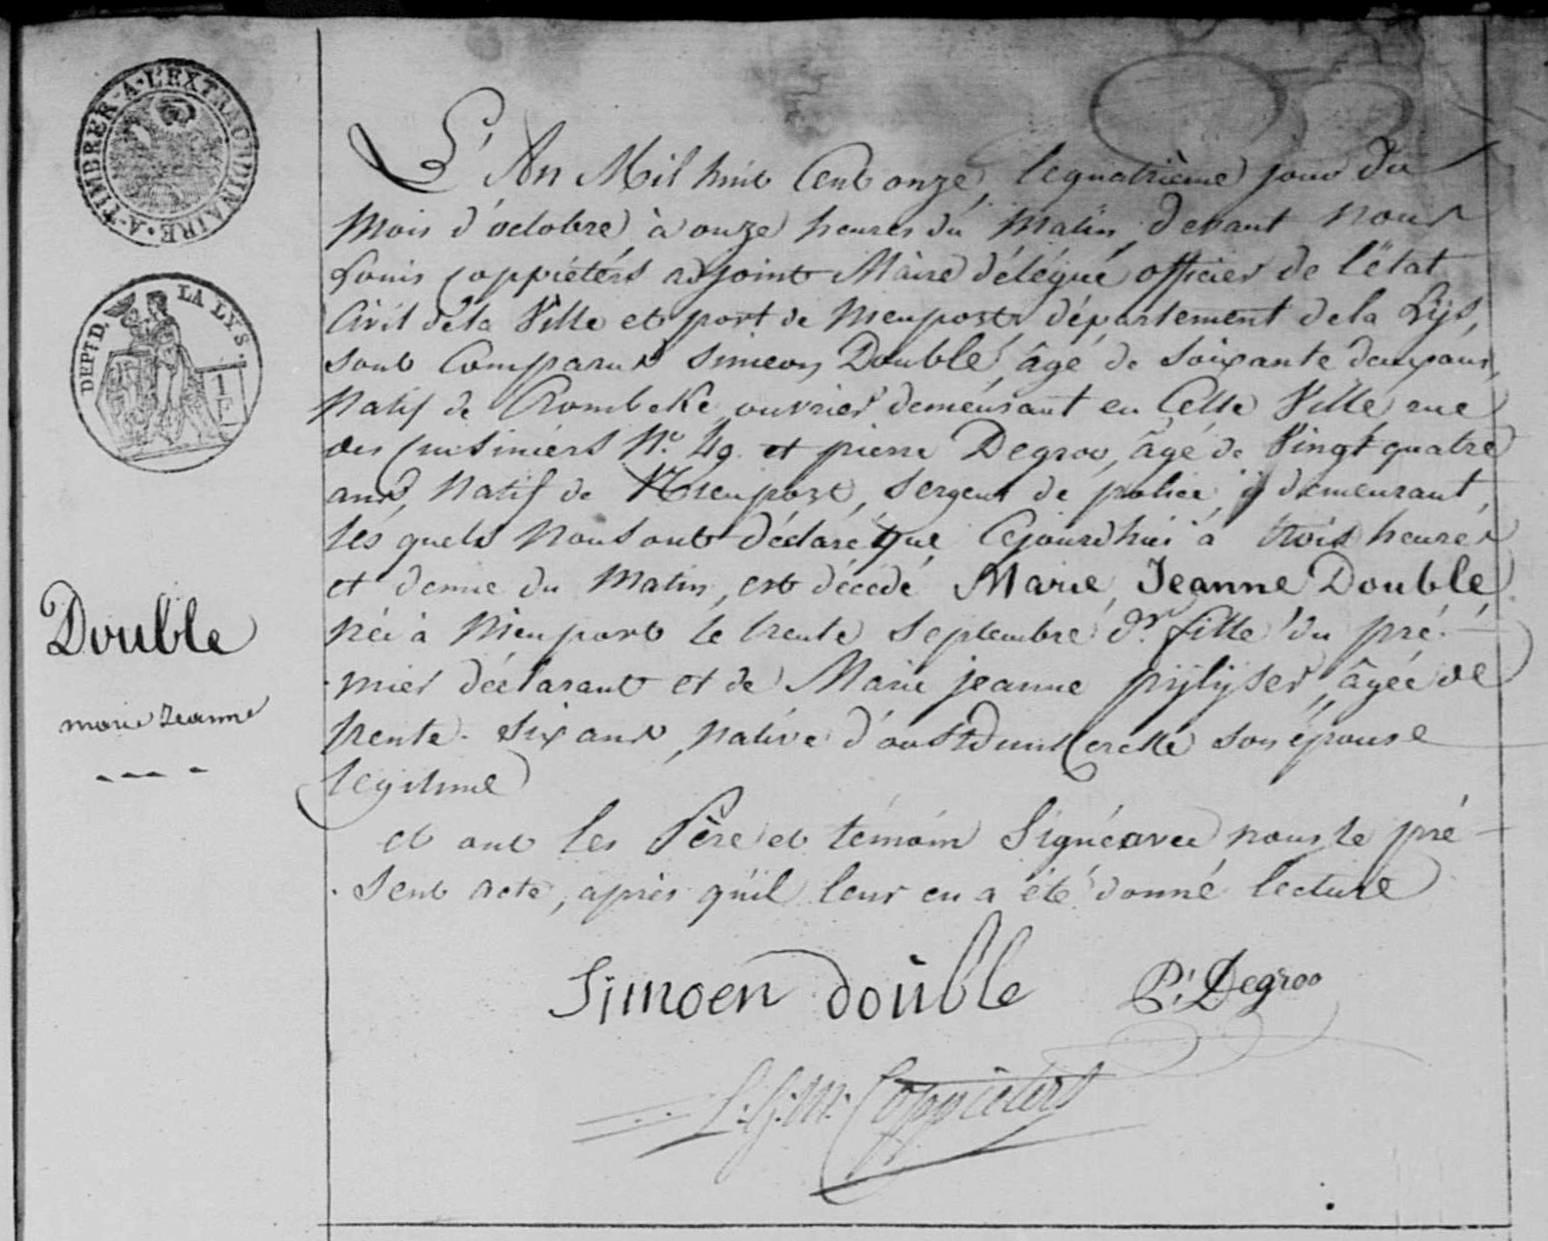 A·TIMBRER·A·L'EXTRAORDINAIRE
DEPT D. LA LYS.
L'An Mil huit Cent onze, le quatrième jour du
Mois d'octobre à onze heures du Matin, devant nous
Louis Coppiéters adjoint Maire délégué officier de l'état
Civil de la Ville et port de Nieuport département de la Lijs,
sont Comparus Simeon Double, âgé de Soixante deux ans,
Natif de Crombeke ouvrier demeurant en Cette Ville rue
des Cuisiniers N.º 49 et pierre Degroo, âgé de Vingt quatre
ans, Natif de Nieuport, Sergent de police, y demeurant,
lés quels Nous ont déclaré que Cejourdhui à trois heures
et demie du Matin, est décédé Marie Jeanne Double,
née à Nieuport le trente Septembre d.r fille du pré-
mier déclarant et de Marie jeanne pijlijser, âgée de
trente-Six ans, native d'oostdunkercke son épouse
legitime
et ont les Père et témoin Signé avec nous le pré-
sent acte, après qu'il leur en a été donné lecture
Double
marie Jeanne
Simoen double P. Degroo
L: J: M: Coppieters